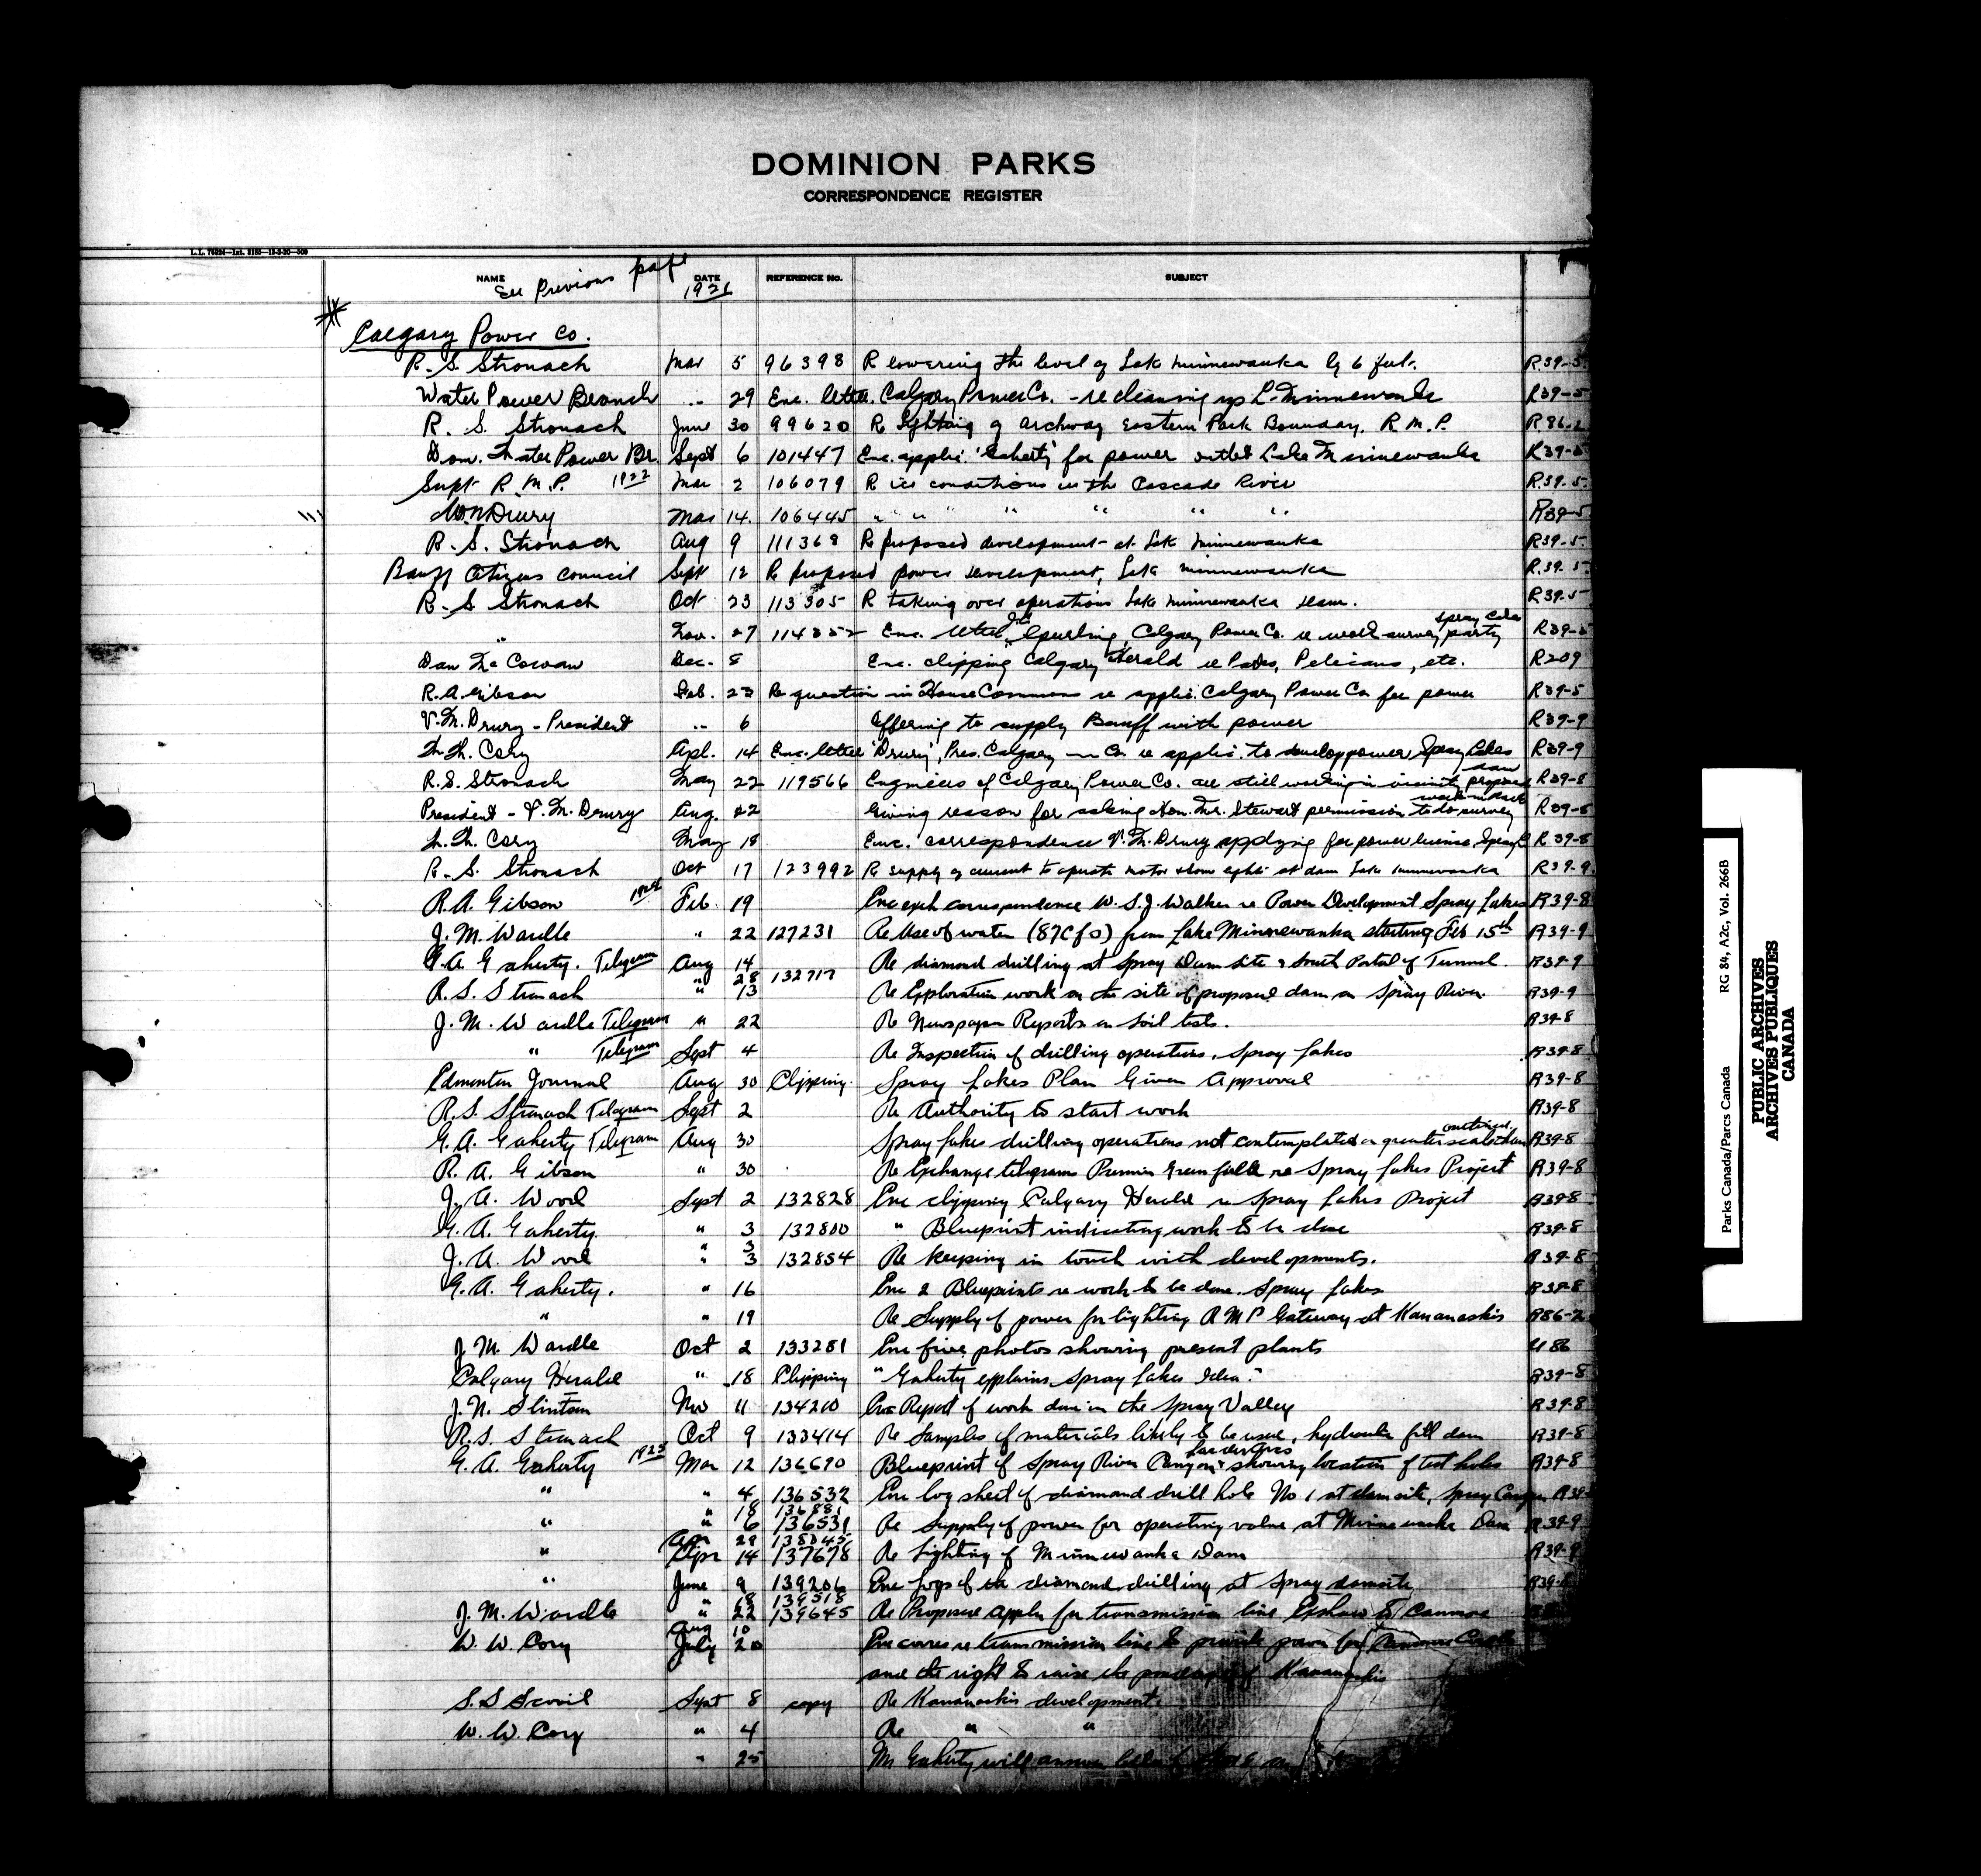 DOMINION PARKS
CORRESPONDENCE REGISTER
L.L. 76924—Int. 8155—13-3-20—500
NAME DATE REFERENCE No. SUBJECT
See Previous page 1921
Calgary Power Co.
R. S. Stronach Mar 5 96398 R lowering the level of Lake Minnewanka by 6 feet. R39-5
Water Power Branch " 29 Enc. letter Calgary Power Co. - re cleaning up L. Minnewanka R39-5
R. S. Stronach June 30 99620 Re lighting of archway Eastern Park Boundary. R.M.P. R86-2
Dom. Water Power Br. Sept 6 101447 Enc. applic. 'Gaherty' for power outlet Lake Minnewanka R39-5
Supt R.M.P. 1922 Mar 2 106079 R ice conditions in the Cascade River R39-5
Drury Mar 14. 106445 " " " " " " R39-5
R. S. Stronach Aug 9 111368 Re proposed development at Lake Minnewanka R39-5
Banff Citizens Council Sept 12 Re proposed power development, Lake Minnewanka R39-5
R. S Stronach Oct 23 113305 R taking over operations Lake Minnewanka dam. R39-5
" Nov. 27 114352 Enc. letter Spurling, Calgary Power Co. re work survey party Spray Lakes R39-5
Dan McCowan Dec. 8 Enc. clipping Calgary Herald re Parks, Pelicans, etc. R209
R.A. Gibson Feb. 23 Re question in House Commons re applic. Calgary Power Co. for power R39-5
V.M. Drury - President " 6 Offering to supply Banff with power R39-9
W.W. Cory Apl. 14 Enc. letter 'Drury', Pres. Calgary Co. re applic. to develop power Spray Lakes R39-9
R.S. Stronach May 22 119566 Engineers of Calgary Power Co. are still working in vicinity proposed dam R39-8
President - V.M. Drury Aug. 22 Giving reason for asking Hon. Mr. Stewart permission to do survey work in Park R39-8
W.W. Cory May 18 Enc. correspondence V.M. Drury applying for power license, Spray R39-8
R. S. Stronach Oct 17 123992 Re supply of current to operate motor at dam Lake Minnewanka R39-9
R.A. Gibson 1924 Feb. 19 Enc exch correspondence W.S.J. Walker re Power Development Spray Lakes R39-8
J.M. Wardle " 22 127231 Re Use of water (87Cfs) from Lake Minnewanka starting Feb 15th R39-9
G.A. Gaherty. Telegram Aug 14 Re diamond drilling at Spray Dam site & South Portal of Tunnel. R39-9
" 28 132717
R.S. Stronach " 13 Re Exploration work on the site of proposed dam on Spray River. R39-9
J.M. Wardle Telegram " 22 Re Newspaper Reports on soil tests. R39-8
" Telegram Sept 4 Re Inspection of drilling operations, Spray Lakes R39-8
Edmonton Journal Aug 30 Clipping. Spray Lakes Plan Given Approval R39-8
R.S. Stronach Telegram Sept 2 Re Authority to start work R39-8
G.A. Gaherty Telegram Aug 30 Spray Lakes drilling operations not contemplated on greater scale than outlined. R39-8
R. A. Gibson " 30 Re Exchange telegrams Premier Greenfield re Spray Lakes Project R39-8
J. A. Wood Sept 2 132828 Enc clipping Calgary Herald re Spray Lakes Project R39-8
G. A. Gaherty " 3 132800 " Blueprint indicating work to be done R39-8
J. A. Wood " 3 3 132854 Re keeping in touch with developments. R39-8
G. A. Gaherty. " 16 Enc 2 Blueprints re work to be done. Spray Lakes R39-8
" " 19 Re Supply of power for lighting RMP Gateway at Kananaskis R86-2
J. M. Wardle Oct 2 133281 Enc five photos showing present plants U86
Calgary Herald " 18 Clipping "Gaherty explains Spray Lakes Idea." R39-8
J. N. Nov 11 134210 Enc Report of work done in the Spray Valley R39-8
R.S. Stronach Oct 9 133414 Re Samples of materials likely to be used, hydraulic fill dam R39-8
G. A. Gaherty 1925 Mar 12 136690 Blueprint of Spray River Canyon showing location of test holes R39-8
" " 4 136532 Enc log sheet of diamond drill hole No 1 at damsite, Spray Canyon R39-
" 18 136881
" " 6 136531 Re Supply of power for operating valve at Minnewanka Dam R39-9
Apr 29 138045
" Apr 14 137678 Re Lighting of Minnewanka Dam R39-9
" June 9 139206 Enc logs of the diamond drilling at Spray damsite R39-
" 18 139518
J. M. Wardle " 22 139645 Re Proposed applic for transmission line Exshaw to Canmore
Aug 10
W. W. Cory July 20 Enc corres re transmission line to provide power for Canmore
and the right to raise the Kananaskis
Sept 8 copy Re Kananaskis development.
W. W. Cory " 4 Re " "
" 25 Mr Gaherty will answer
Parks Canada/Parcs Canada RG 84, A2c, Vol. 266B
PUBLIC ARCHIVES
ARCHIVES PUBLIQUES
CANADA